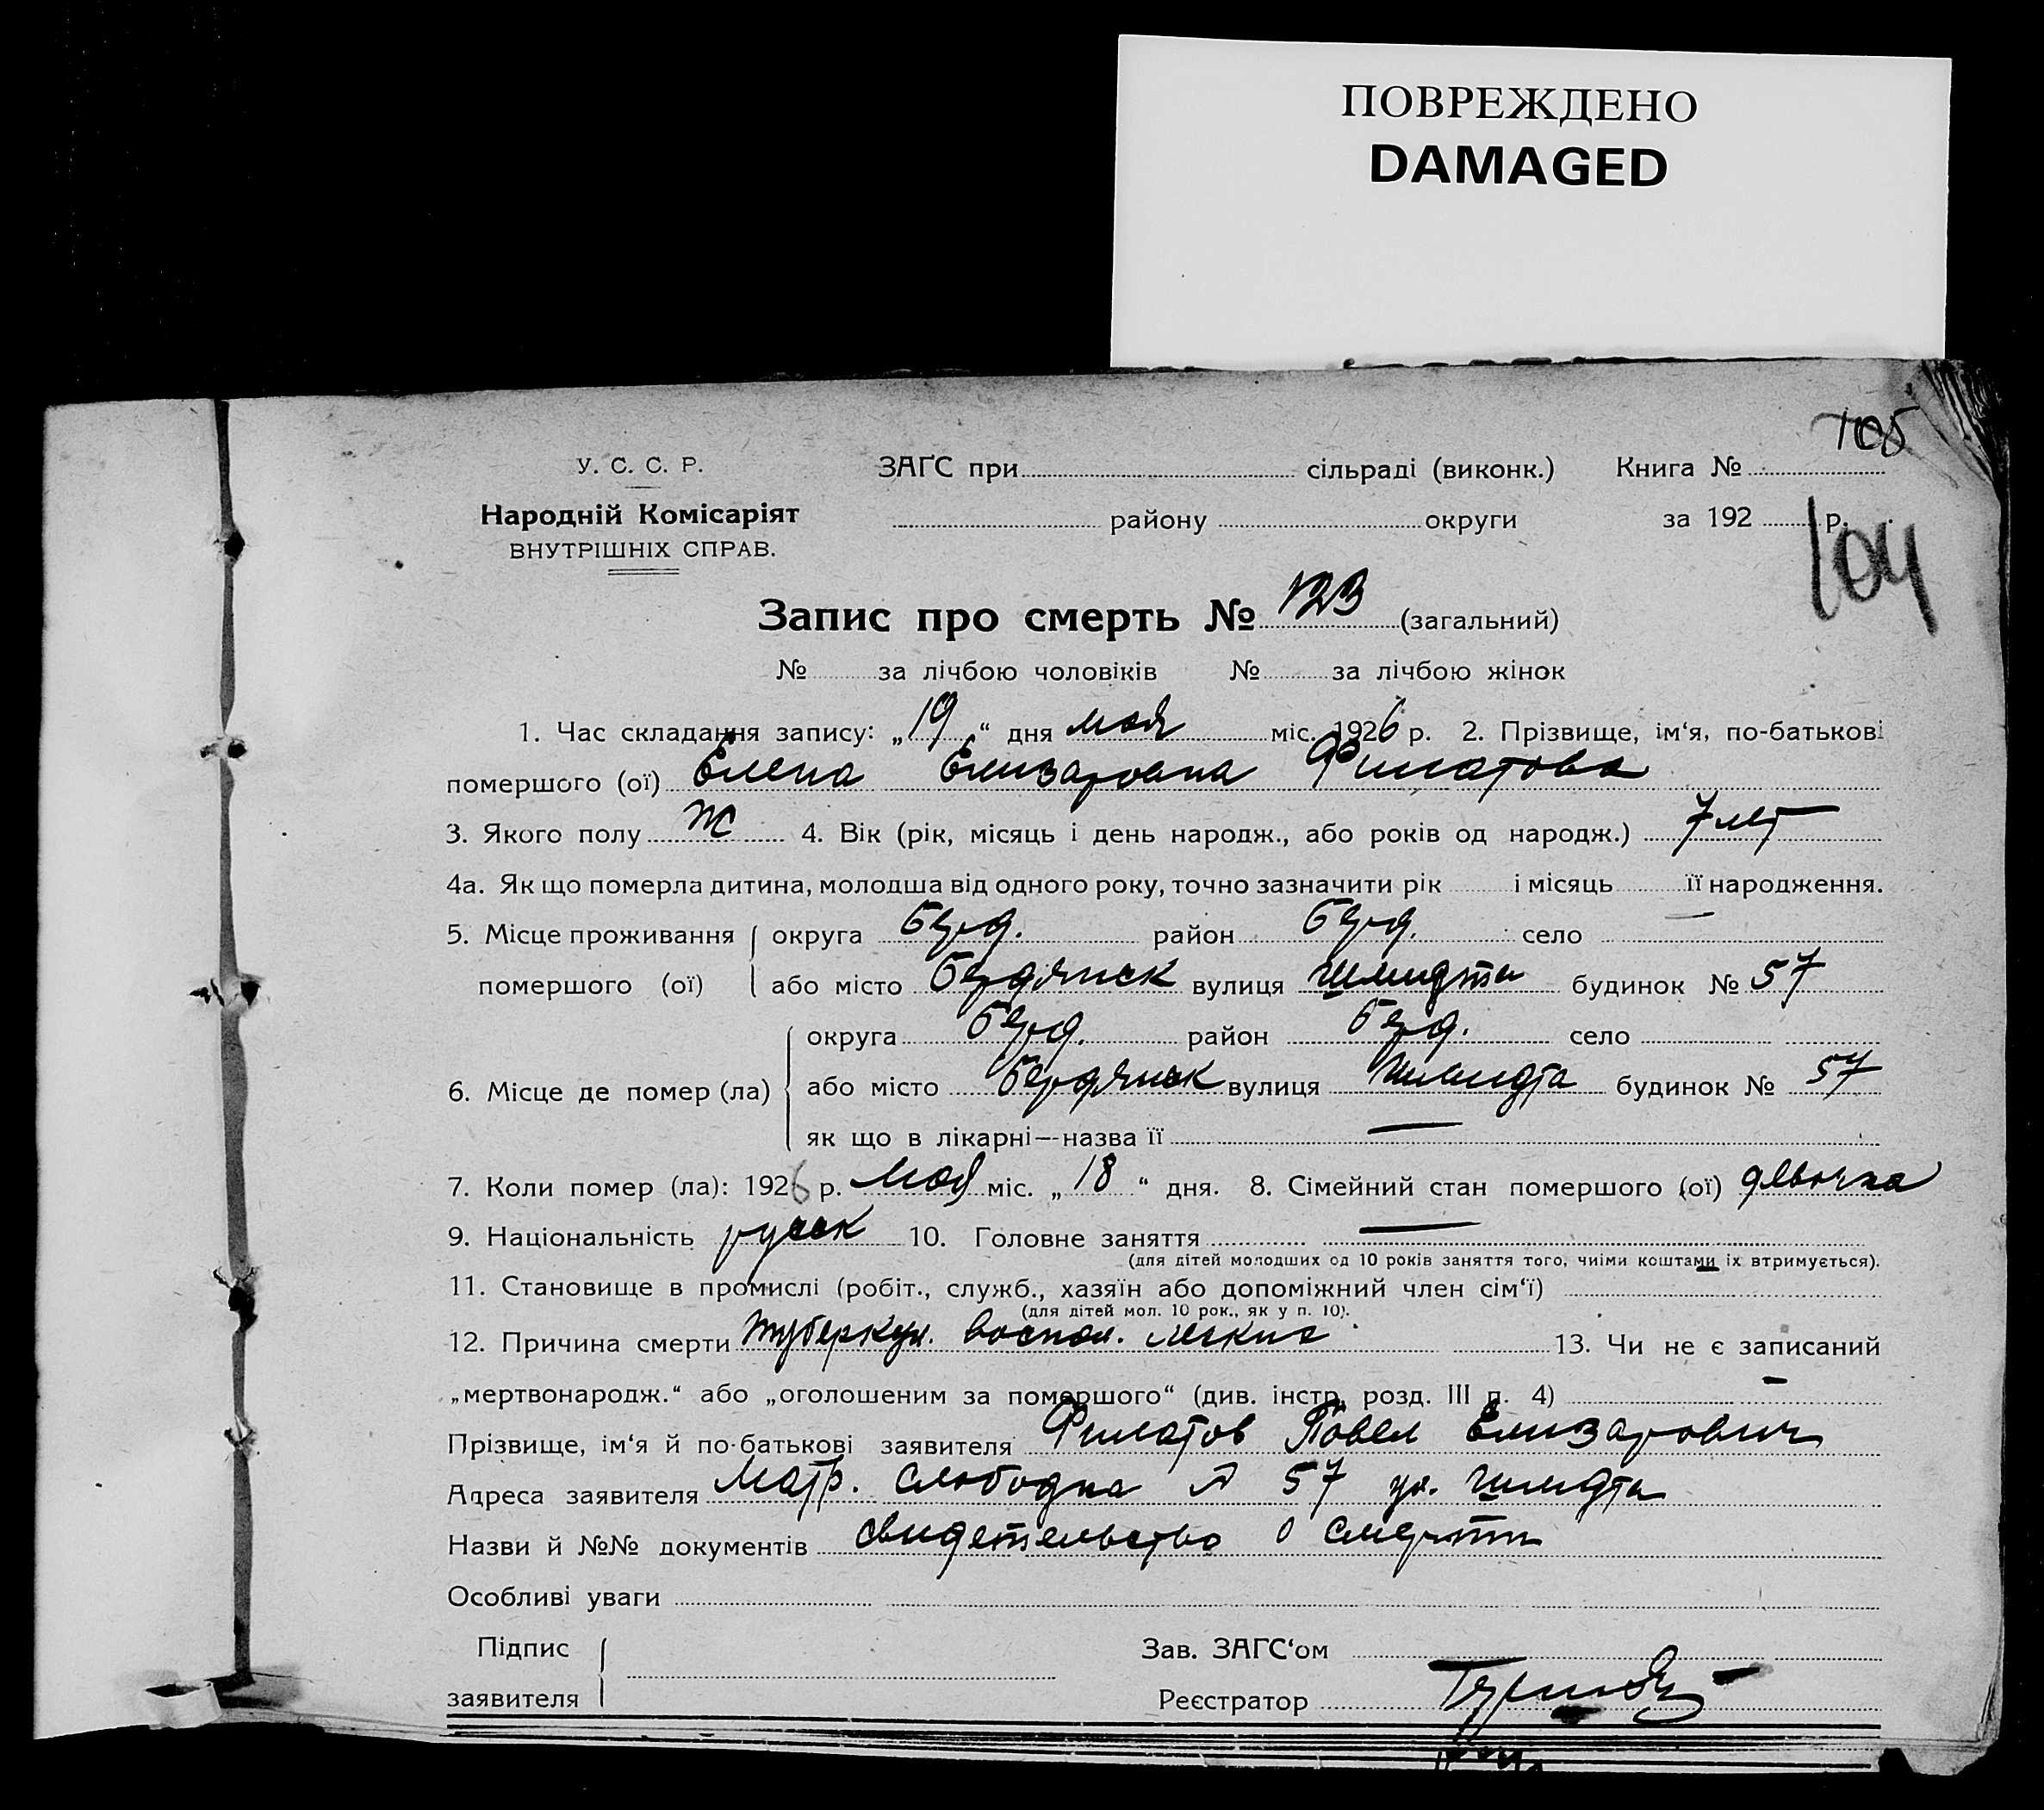 ПОВРЕЖДЕНО
DAMAGED
105
У. С. С. Р.
ЗАГС при сільраді (виконк.) Книга №
Народній Комісаріят
району округи за 192 р.
ВНУТРІШНІХ СПРАВ.
104
Запис про смерть № 123 (загальний)
№ за лічбою чоловіків № за лічбою жінок
1. Час складання запису: „19“ дня мая міс. 1926 р. 2. Прізвище, ім‘я, по-батькові
помершого (ої) Елена Елизаровна Филатова
3. Якого полу Ж 4. Вік (рік, місяць і день народж., або років од народж.) 7 лет
4а. Як що померла дитина, молодша від одного року, точно зазначити рік і місяць її народження.
5. Місце проживання округа Берд. район Берд. село —
помершого (ої) або місто Бердянск вулиця Шмидта будинок № 57
округа Берд. район Берд. село
6. Місце де помер (ла) або місто Бердянск вулиця Шмидта будинок № 57
як що в лікарні—назва її —
7. Коли помер (ла): 1926 р. мая міс. „18“ дня. 8. Сімейний стан помершого (ої) девочка
9. Національність русск 10. Головне заняття —
(для дітей молодших од 10 років заняття того, чиїми коштами їх втримується).
11. Становище в промислі (робіт., служб., хазяїн або допоміжний член сім‘ї)
(для дітей мол. 10 рок., як у п. 10).
12. Причина смерти туберкул. воспал. легких 13. Чи не є записаний
„мертвонародж.“ або „оголошеним за помершого“ (див. інстр. розд. III п. 4) —
Прізвище, ім‘я й по-батькові заявителя Филатов Павел Елизарович
Адреса заявителя Матр. слободка 57 ул. Шмидта
Назви й №№ документів свидетельство о смерти
Особливі уваги
Підпис Зав. ЗАГС‘ом
заявителя Реєстратор